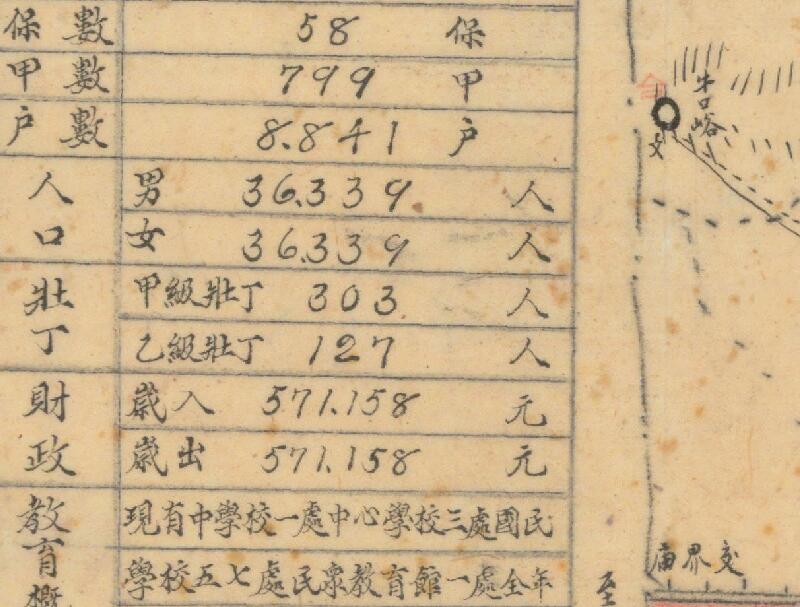 保數 58 保
甲數 799 甲
户數 8.841 户
人口 男 36.339 人
女 36.339 人
壯丁 甲級壯丁 303 人
乙級壯丁 127 人
財政 歲入 571.158 元
歲出 571.158 元
教育概 現有中學校一處中心學校三處國民
學校五七處民衆教育館一處全年
牛口峪
文
交界庙
至